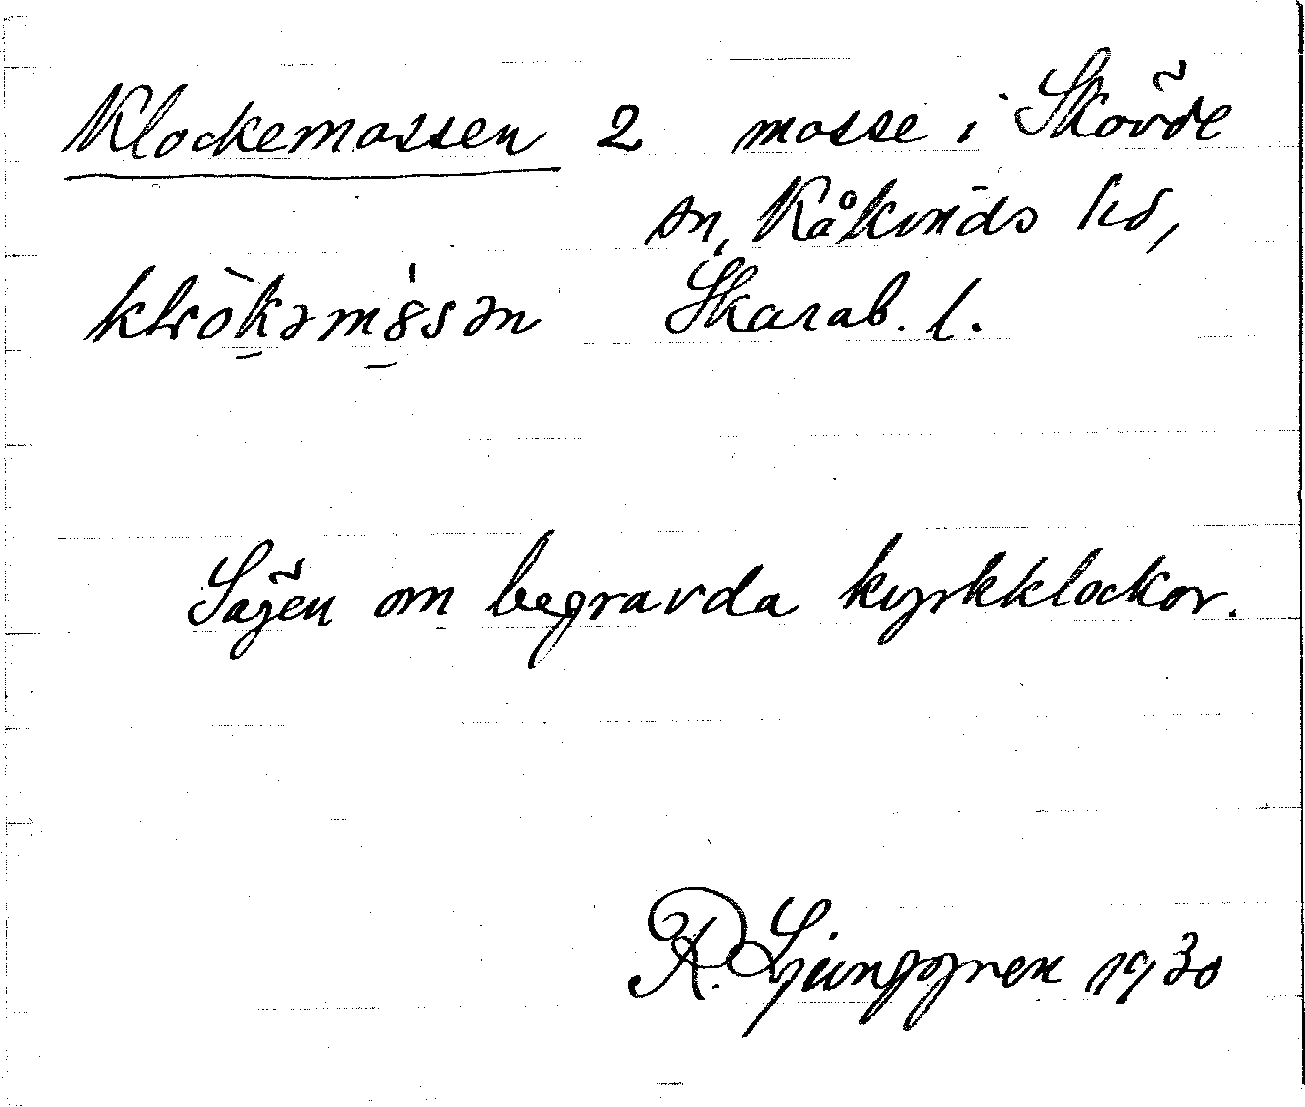 Klockemossen 2 mosse i Skövde
sn, Kåkinds hd,
Skarab. l.
Sägen om begravda kyrkklockor.
R. Ljunggren 1930